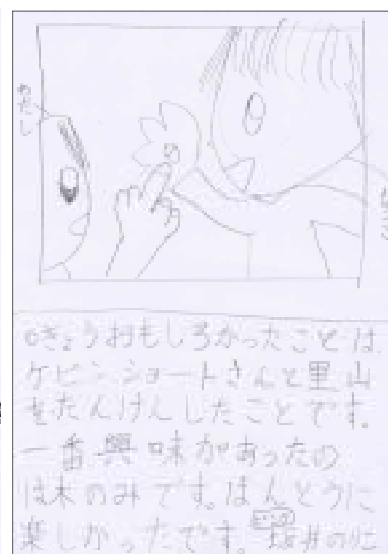 わたし
○きょうおもしろかったことは、
ケビンショートさんと里山
をたんけんしたことです。
一番興味があったの
は木のみです。ほんとうに
楽しかったです。